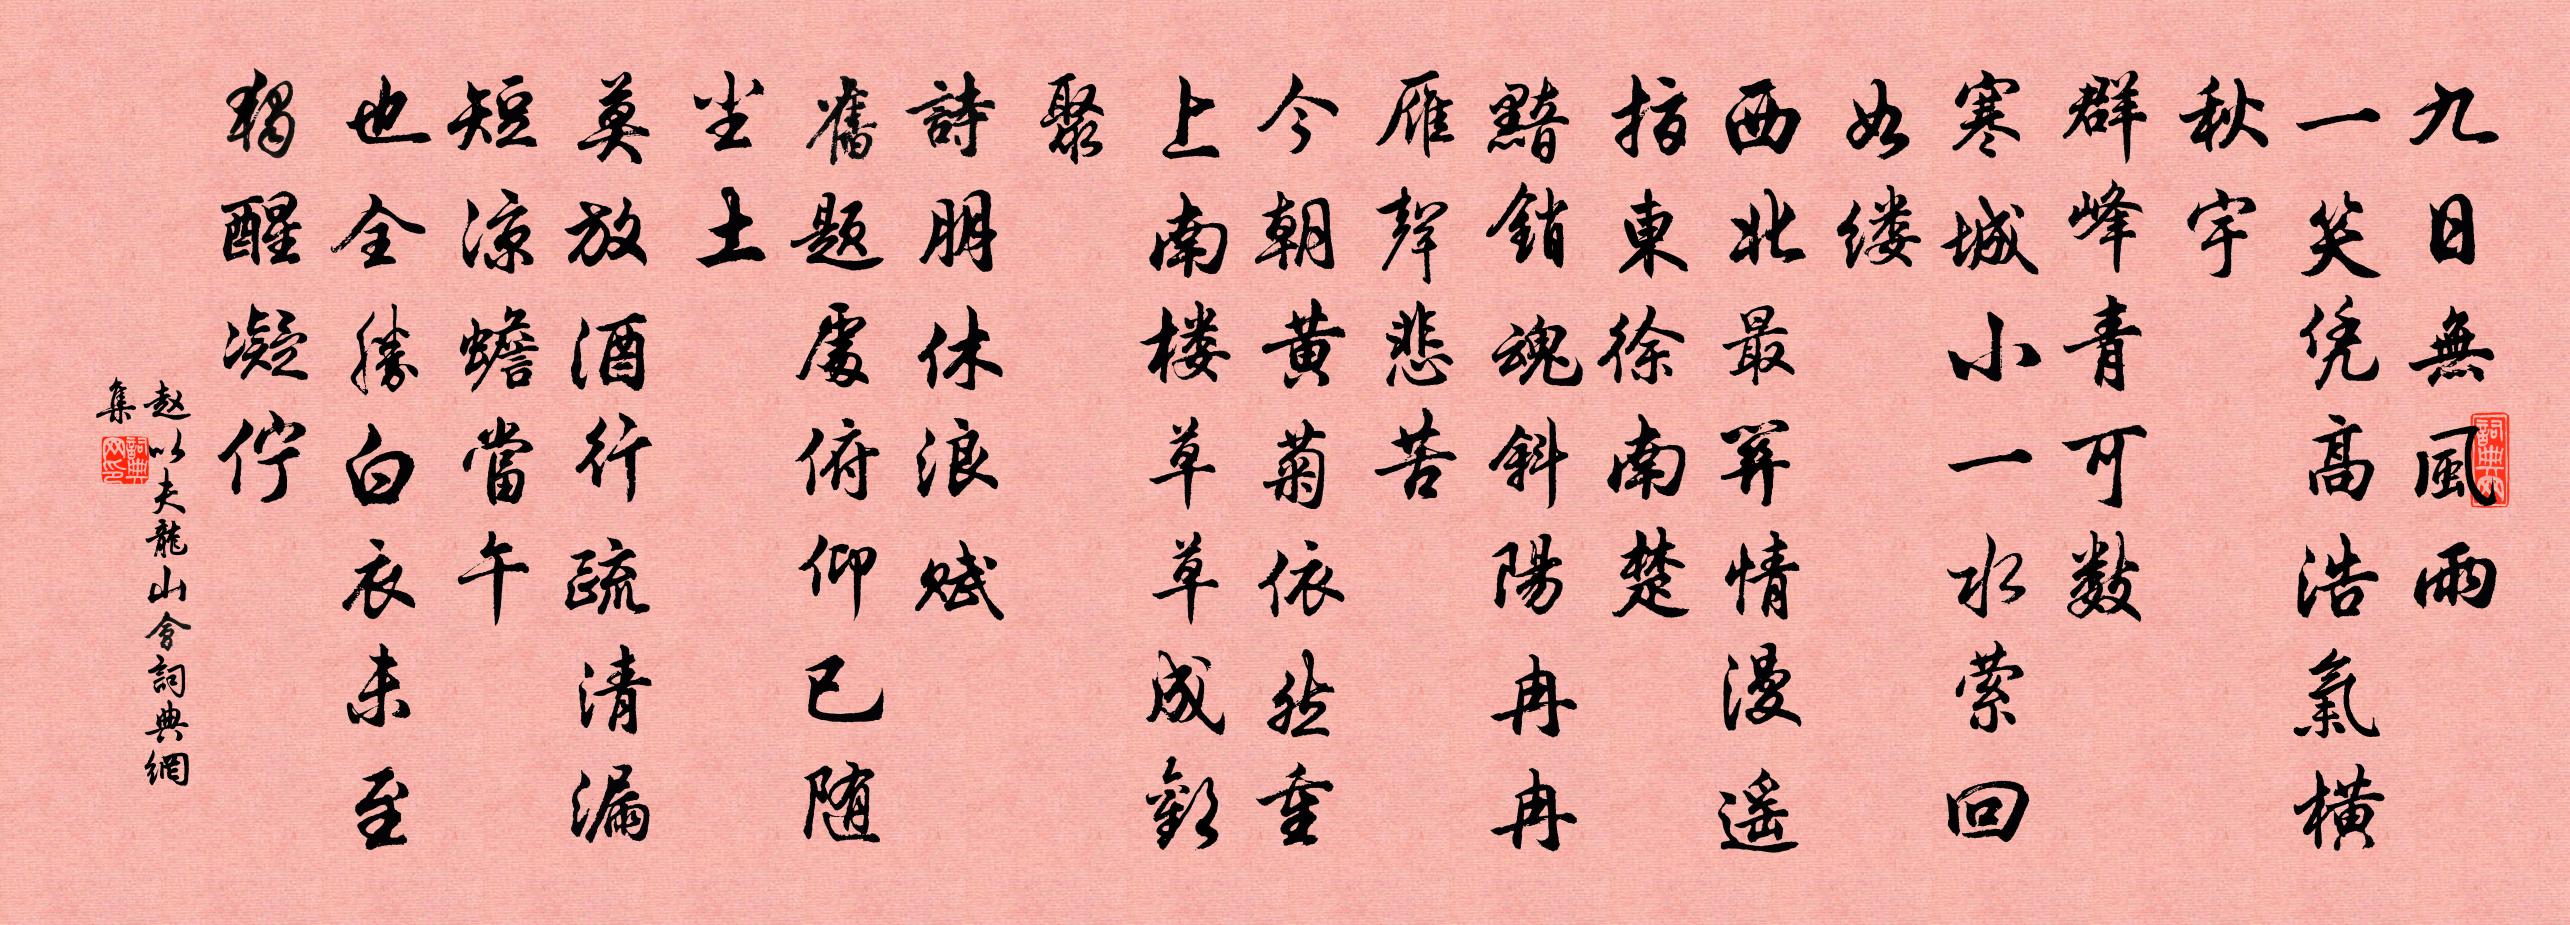 九日無風雨
一笑凭高浩氣橫
秋宇
群峰青可数
寒城小一水萦回
如缕
西北最關情漫遥
指東徐南楚
黯銷魂斜陽冉冉
雁聲悲苦
今朝黄菊依然重
上南楼草草成歡
聚
詩朋休浪赋
舊题處俯仰已随
尘土
莫放酒行疏清漏
短涼蟾當午
也全勝白衣未至
獨醒凝佇
赵以夫龍山會詞典網
集